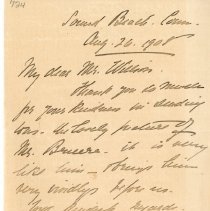 724
Sound Beach. Conn.
Aug. 26. 1908
My dear Mr.
Thank you so much
for your kindness in sending
the lovely picture of
Mr. it is very
like him & brings him
very vividly before us.